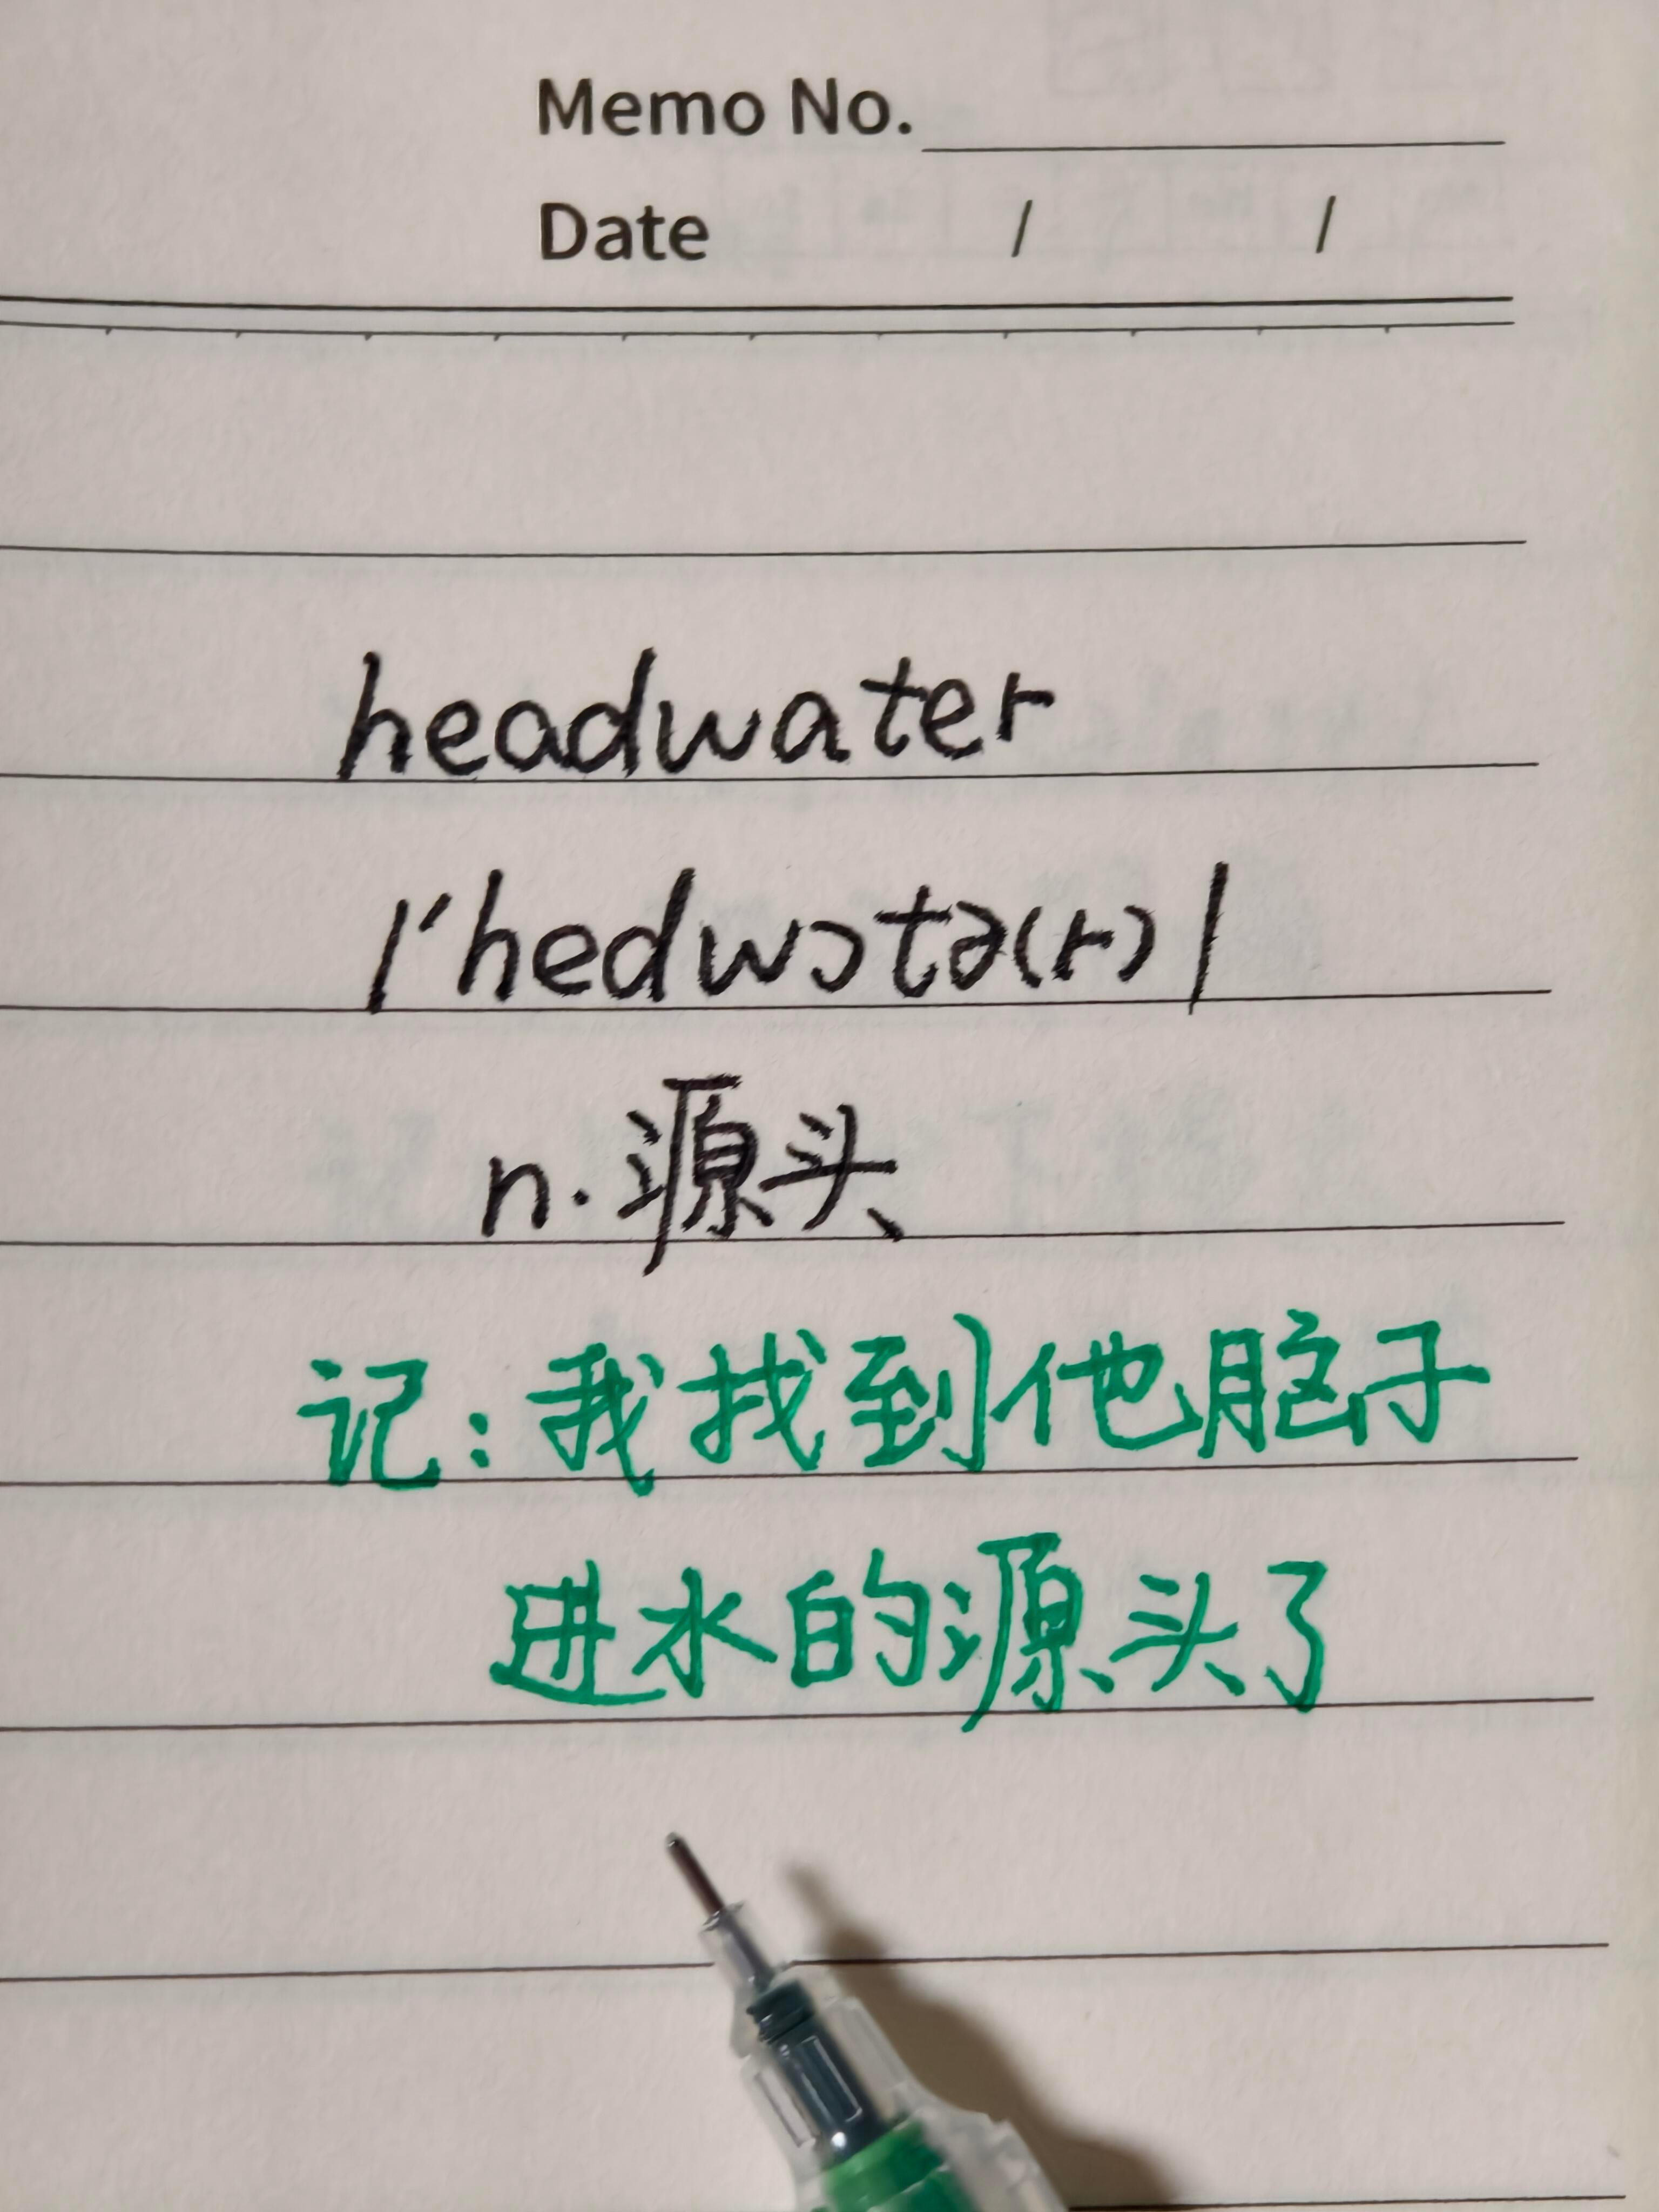 Memo No.
Date / /
headwater
/'hedwɔtə(r)/
n.源头
记:我找到他脑子
进水的源头了